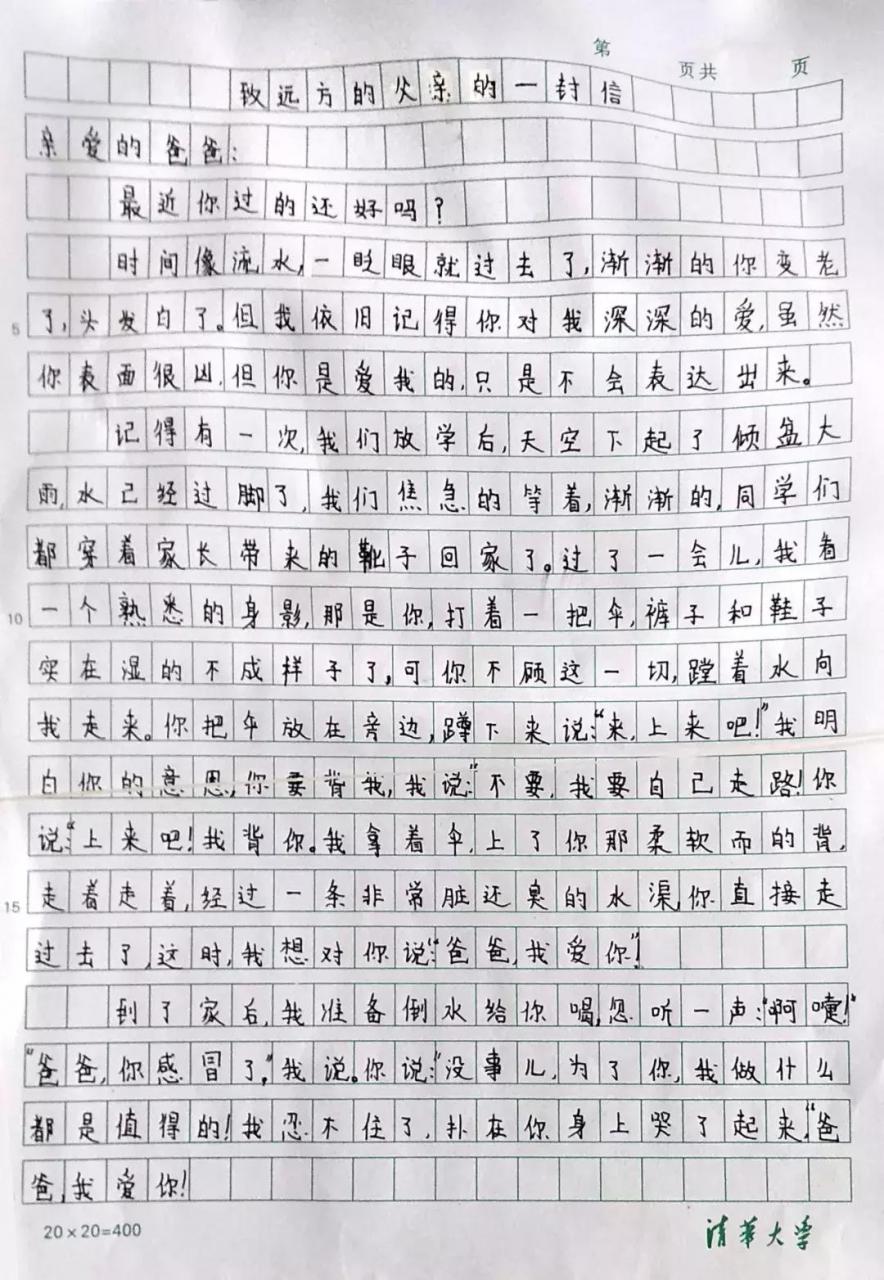 第 页共 页
致远方的父亲的一封信
亲爱的爸爸:
最近你过的还好吗?
时间像流水,一眨眼就过去了,渐渐的你变老
5 了,头发白了。但我依旧记得你对我深深的爱,虽然
你表面很凶,但你是爱我的,只是不会表达出来。
记得有一次,我们放学后,天空下起了倾盆大
雨,水已经过脚了,我们焦急的等着,渐渐的,同学们
都穿着家长带来的靴子回家了。过了一会儿,我看
10 一个熟悉的身影,那是你,打着一把伞,裤子和鞋子
实在湿的不成样子了,可你不顾这一切,蹚着水向
我走来。你把伞放在旁边,蹲下来说:“来,上来吧!”我明
白你的意思,你要背我,我说:“不要,我要自己走路!你
说:“上来吧!我背你。我拿着伞,上了你那柔软而的背,
15 走着走着,经过一条非常脏还臭的水渠,你直接走
过去了,这时,我想对你说:“爸爸,我爱你”!
到了家后,我准备倒水给你喝,忽听一声:“啊嚏!”
“爸爸,你感冒了,”我说。你说:“没事儿,为了你,我做什么
都是值得的!我忍不住了,扑在你身上哭了起来,“爸
爸,我爱你!
20×20=400
清华大学